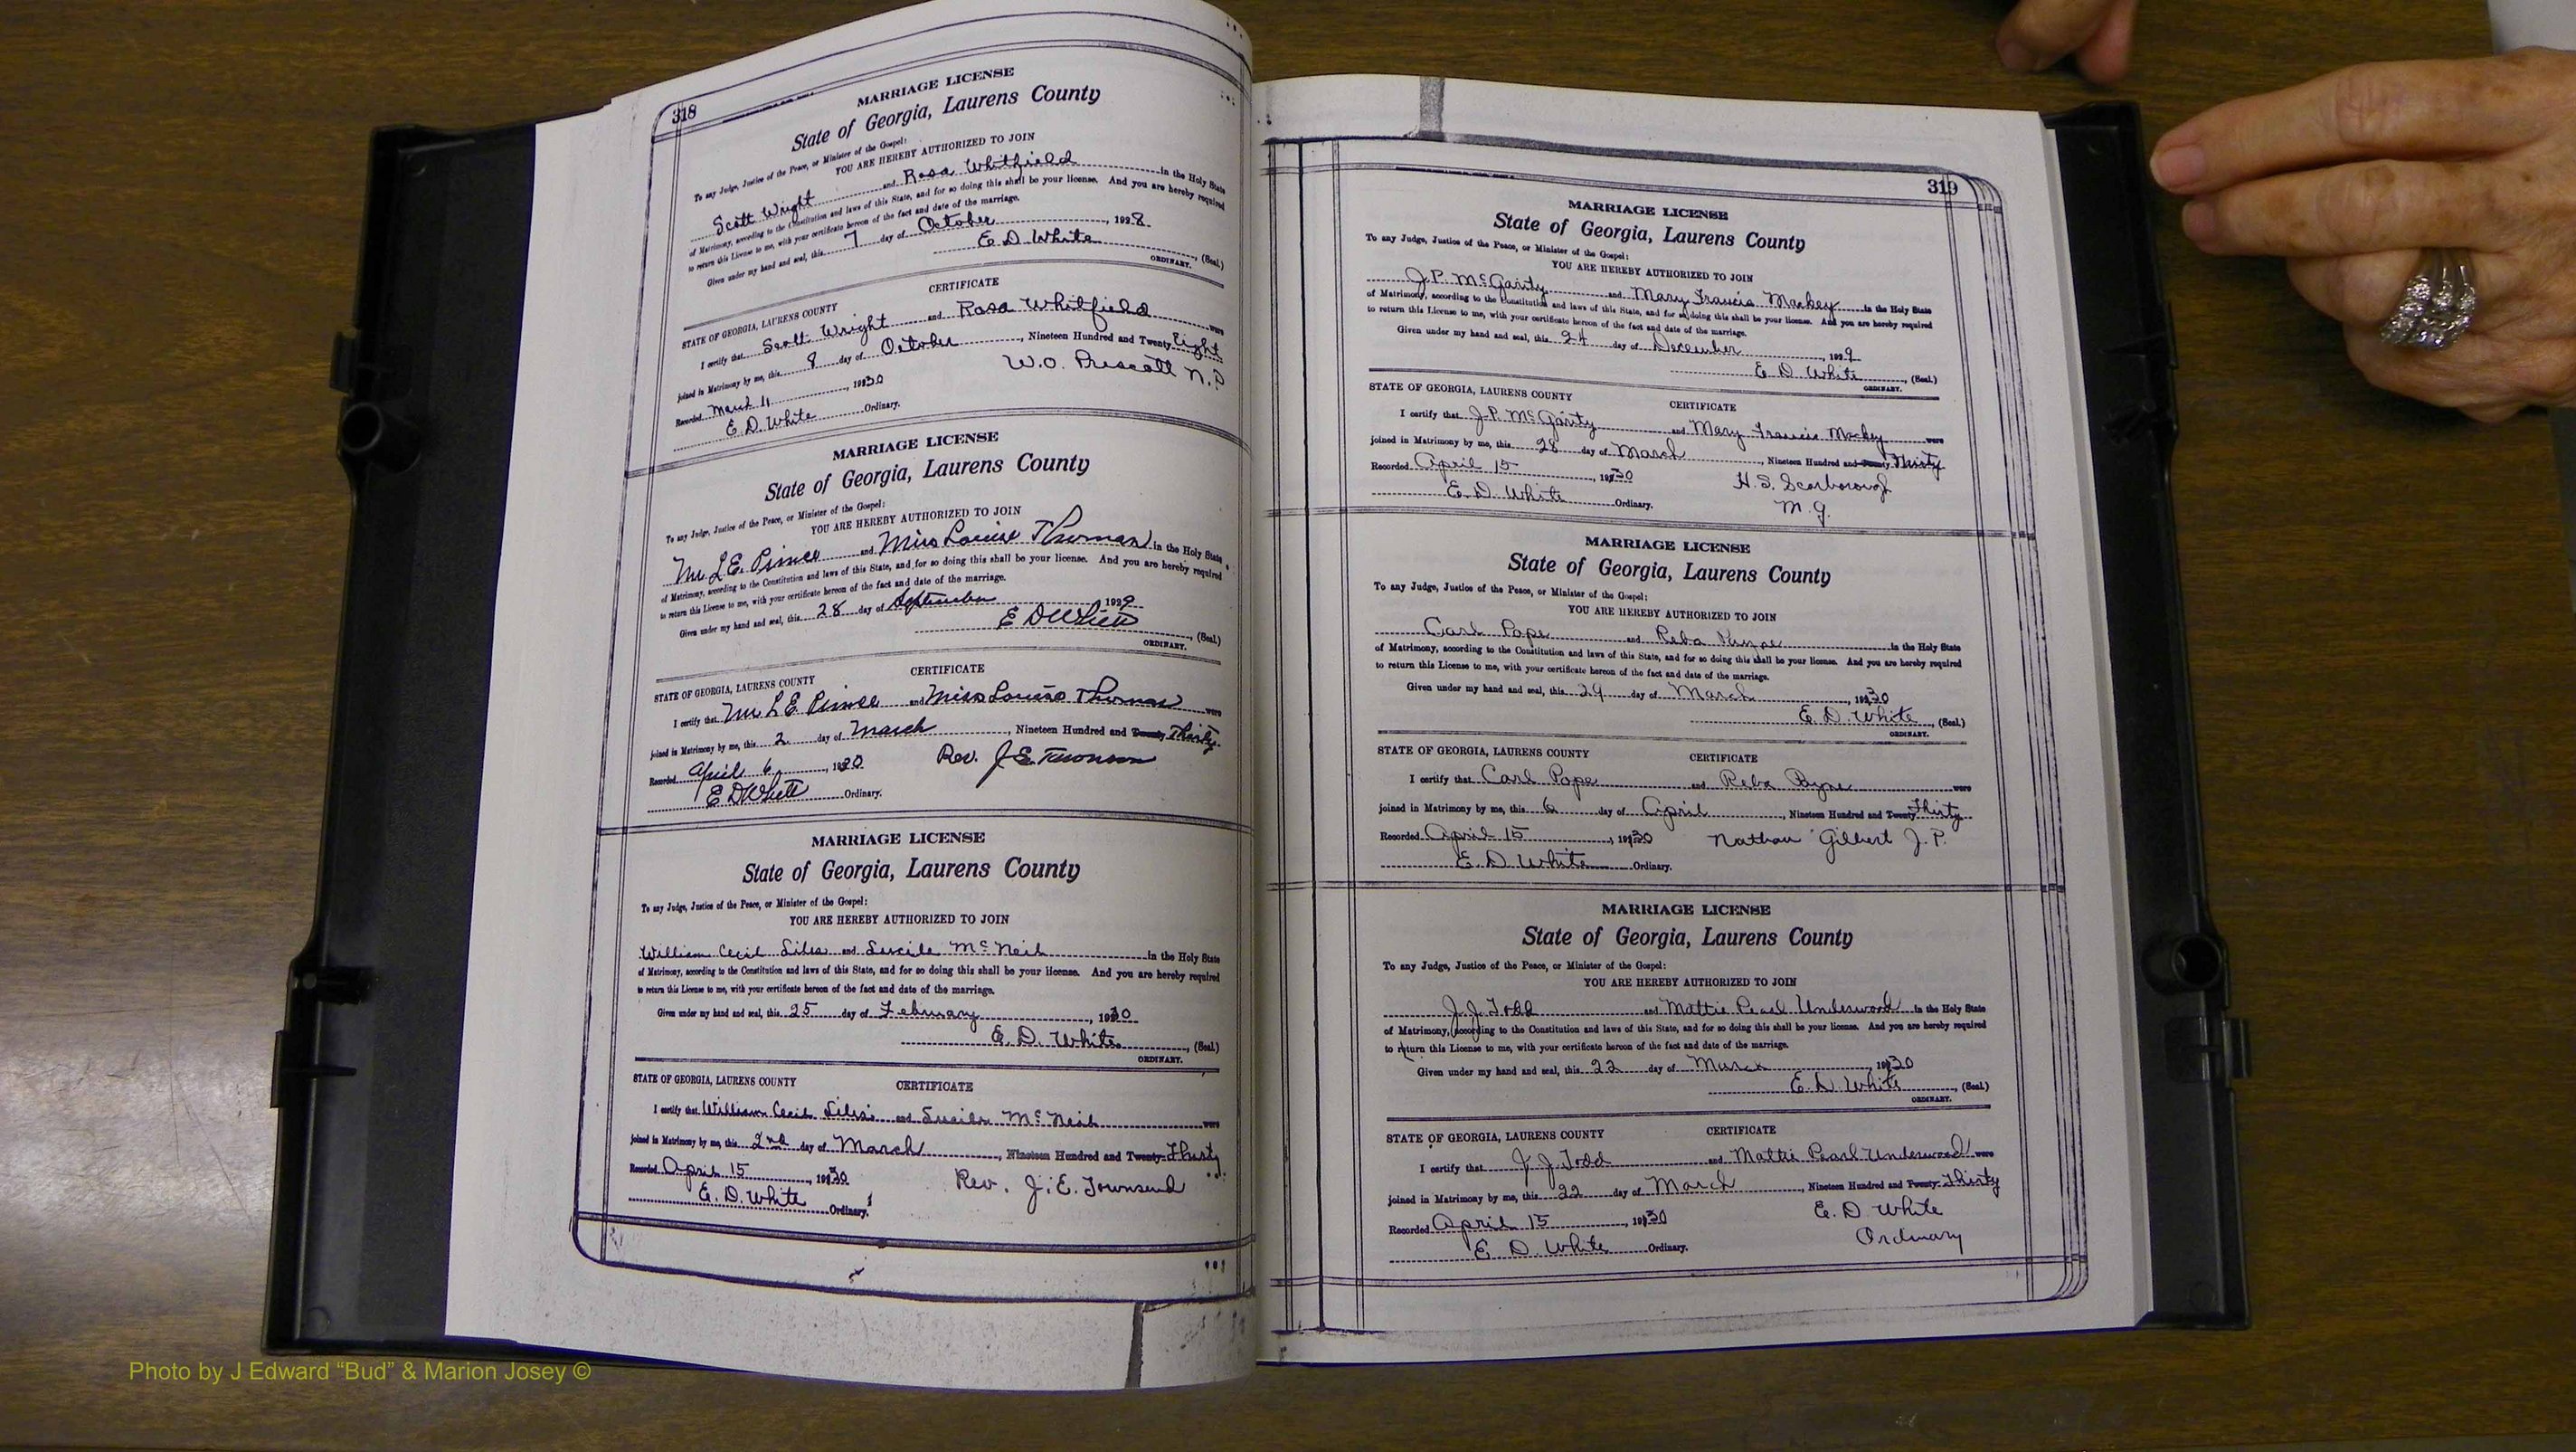 318
MARRIAGE LICENSE
State of Georgia, Laurens County
To any Judge, Justice of the Peace, or Minister of the Gospel:
YOU ARE HEREBY AUTHORIZED TO JOIN
Scott Wright and Rosa Whitfield in the Holy State
of Matrimony, according to the Constitution and laws of this State, and for so doing this shall be your license. And you are hereby required
to return this License to me, with your certificate hereon of the fact and date of the marriage.
Given under my hand and seal, this 7 day of October, 1928
E. D. White, (Seal)
ORDINARY.
CERTIFICATE
STATE OF GEORGIA, LAURENS COUNTY
I certify that Scott Wright and Rosa Whitfield were
joined in Matrimony by me, this 8 day of October, Nineteen Hundred and Twenty Eight
Recorded March 11, 1930 W.O. Prescott N.P
E. D. White Ordinary.
MARRIAGE LICENSE
State of Georgia, Laurens County
To any Judge, Justice of the Peace, or Minister of the Gospel:
YOU ARE HEREBY AUTHORIZED TO JOIN
Mr L E. Prince and Miss Louise Thomas in the Holy State
of Matrimony, according to the Constitution and laws of this State, and for so doing this shall be your license. And you are hereby required
to return this License to me, with your certificate hereon of the fact and date of the marriage.
Given under my hand and seal, this 28 day of September 1929
E D White, (Seal)
ORDINARY.
CERTIFICATE
STATE OF GEORGIA, LAURENS COUNTY
I certify that Mr L E Prince and Miss Louise Thomas were
joined in Matrimony by me, this 2 day of March, Nineteen Hundred and Twenty Thirty
Recorded April 6, 1930 Rev. J. E.
E D White Ordinary.
MARRIAGE LICENSE
State of Georgia, Laurens County
To any Judge, Justice of the Peace, or Minister of the Gospel:
YOU ARE HEREBY AUTHORIZED TO JOIN
William Cecil and Lucile McNeil in the Holy State
of Matrimony, according to the Constitution and laws of this State, and for so doing this shall be your license. And you are hereby required
to return this License to me, with your certificate hereon of the fact and date of the marriage.
Given under my hand and seal, this 25 day of February, 1930
E. D. White, (Seal)
ORDINARY.
STATE OF GEORGIA, LAURENS COUNTY CERTIFICATE
I certify that William Cecil and Lucile McNeil were
joined in Matrimony by me, this 2nd day of March, Nineteen Hundred and Twenty Thirty
Recorded April 15, 1930 Rev. J. E. Townsend
E. D. White Ordinary.
319
MARRIAGE LICENSE
State of Georgia, Laurens County
To any Judge, Justice of the Peace, or Minister of the Gospel:
YOU ARE HEREBY AUTHORIZED TO JOIN
J.P. McGarity and Mary Francis Mackey in the Holy State
of Matrimony, according to the Constitution and laws of this State, and for so doing this shall be your license. And you are hereby required
to return this License to me, with your certificate hereon of the fact and date of the marriage.
Given under my hand and seal, this 24 day of December, 1929
E. D. White, (Seal)
ORDINARY.
STATE OF GEORGIA, LAURENS COUNTY CERTIFICATE
I certify that J.P. McGarity and Mary Francis Mackey were
joined in Matrimony by me, this 28 day of March, Nineteen Hundred and Twenty Thirty
Recorded April 15, 1930 H. S. Scarborough
E. D. White Ordinary. M. G.
MARRIAGE LICENSE
State of Georgia, Laurens County
To any Judge, Justice of the Peace, or Minister of the Gospel:
YOU ARE HEREBY AUTHORIZED TO JOIN
Carl Pope and Reba in the Holy State
of Matrimony, according to the Constitution and laws of this State, and for so doing this shall be your license. And you are hereby required
to return this License to me, with your certificate hereon of the fact and date of the marriage.
Given under my hand and seal, this 29 day of March, 1930
E. D. White, (Seal)
ORDINARY.
STATE OF GEORGIA, LAURENS COUNTY CERTIFICATE
I certify that Carl Pope and Reba were
joined in Matrimony by me, this 6 day of April, Nineteen Hundred and Twenty Thirty
Recorded April 15, 1930 Nathan Gilbert J. P.
E. D. White Ordinary.
MARRIAGE LICENSE
State of Georgia, Laurens County
To any Judge, Justice of the Peace, or Minister of the Gospel:
YOU ARE HEREBY AUTHORIZED TO JOIN
J. J. Todd and Mattie Pearl Underwood in the Holy State
of Matrimony, according to the Constitution and laws of this State, and for so doing this shall be your license. And you are hereby required
to return this License to me, with your certificate hereon of the fact and date of the marriage.
Given under my hand and seal, this 22 day of March, 1930
E. D. White, (Seal)
ORDINARY.
STATE OF GEORGIA, LAURENS COUNTY CERTIFICATE
I certify that J. J. Todd and Mattie Pearl Underwood were
joined in Matrimony by me, this 22 day of March, Nineteen Hundred and Twenty Thirty
Recorded April 15, 1930 E. D. White
E. D. White Ordinary. Ordinary
Photo by J Edward “Bud” & Marion Josey ©